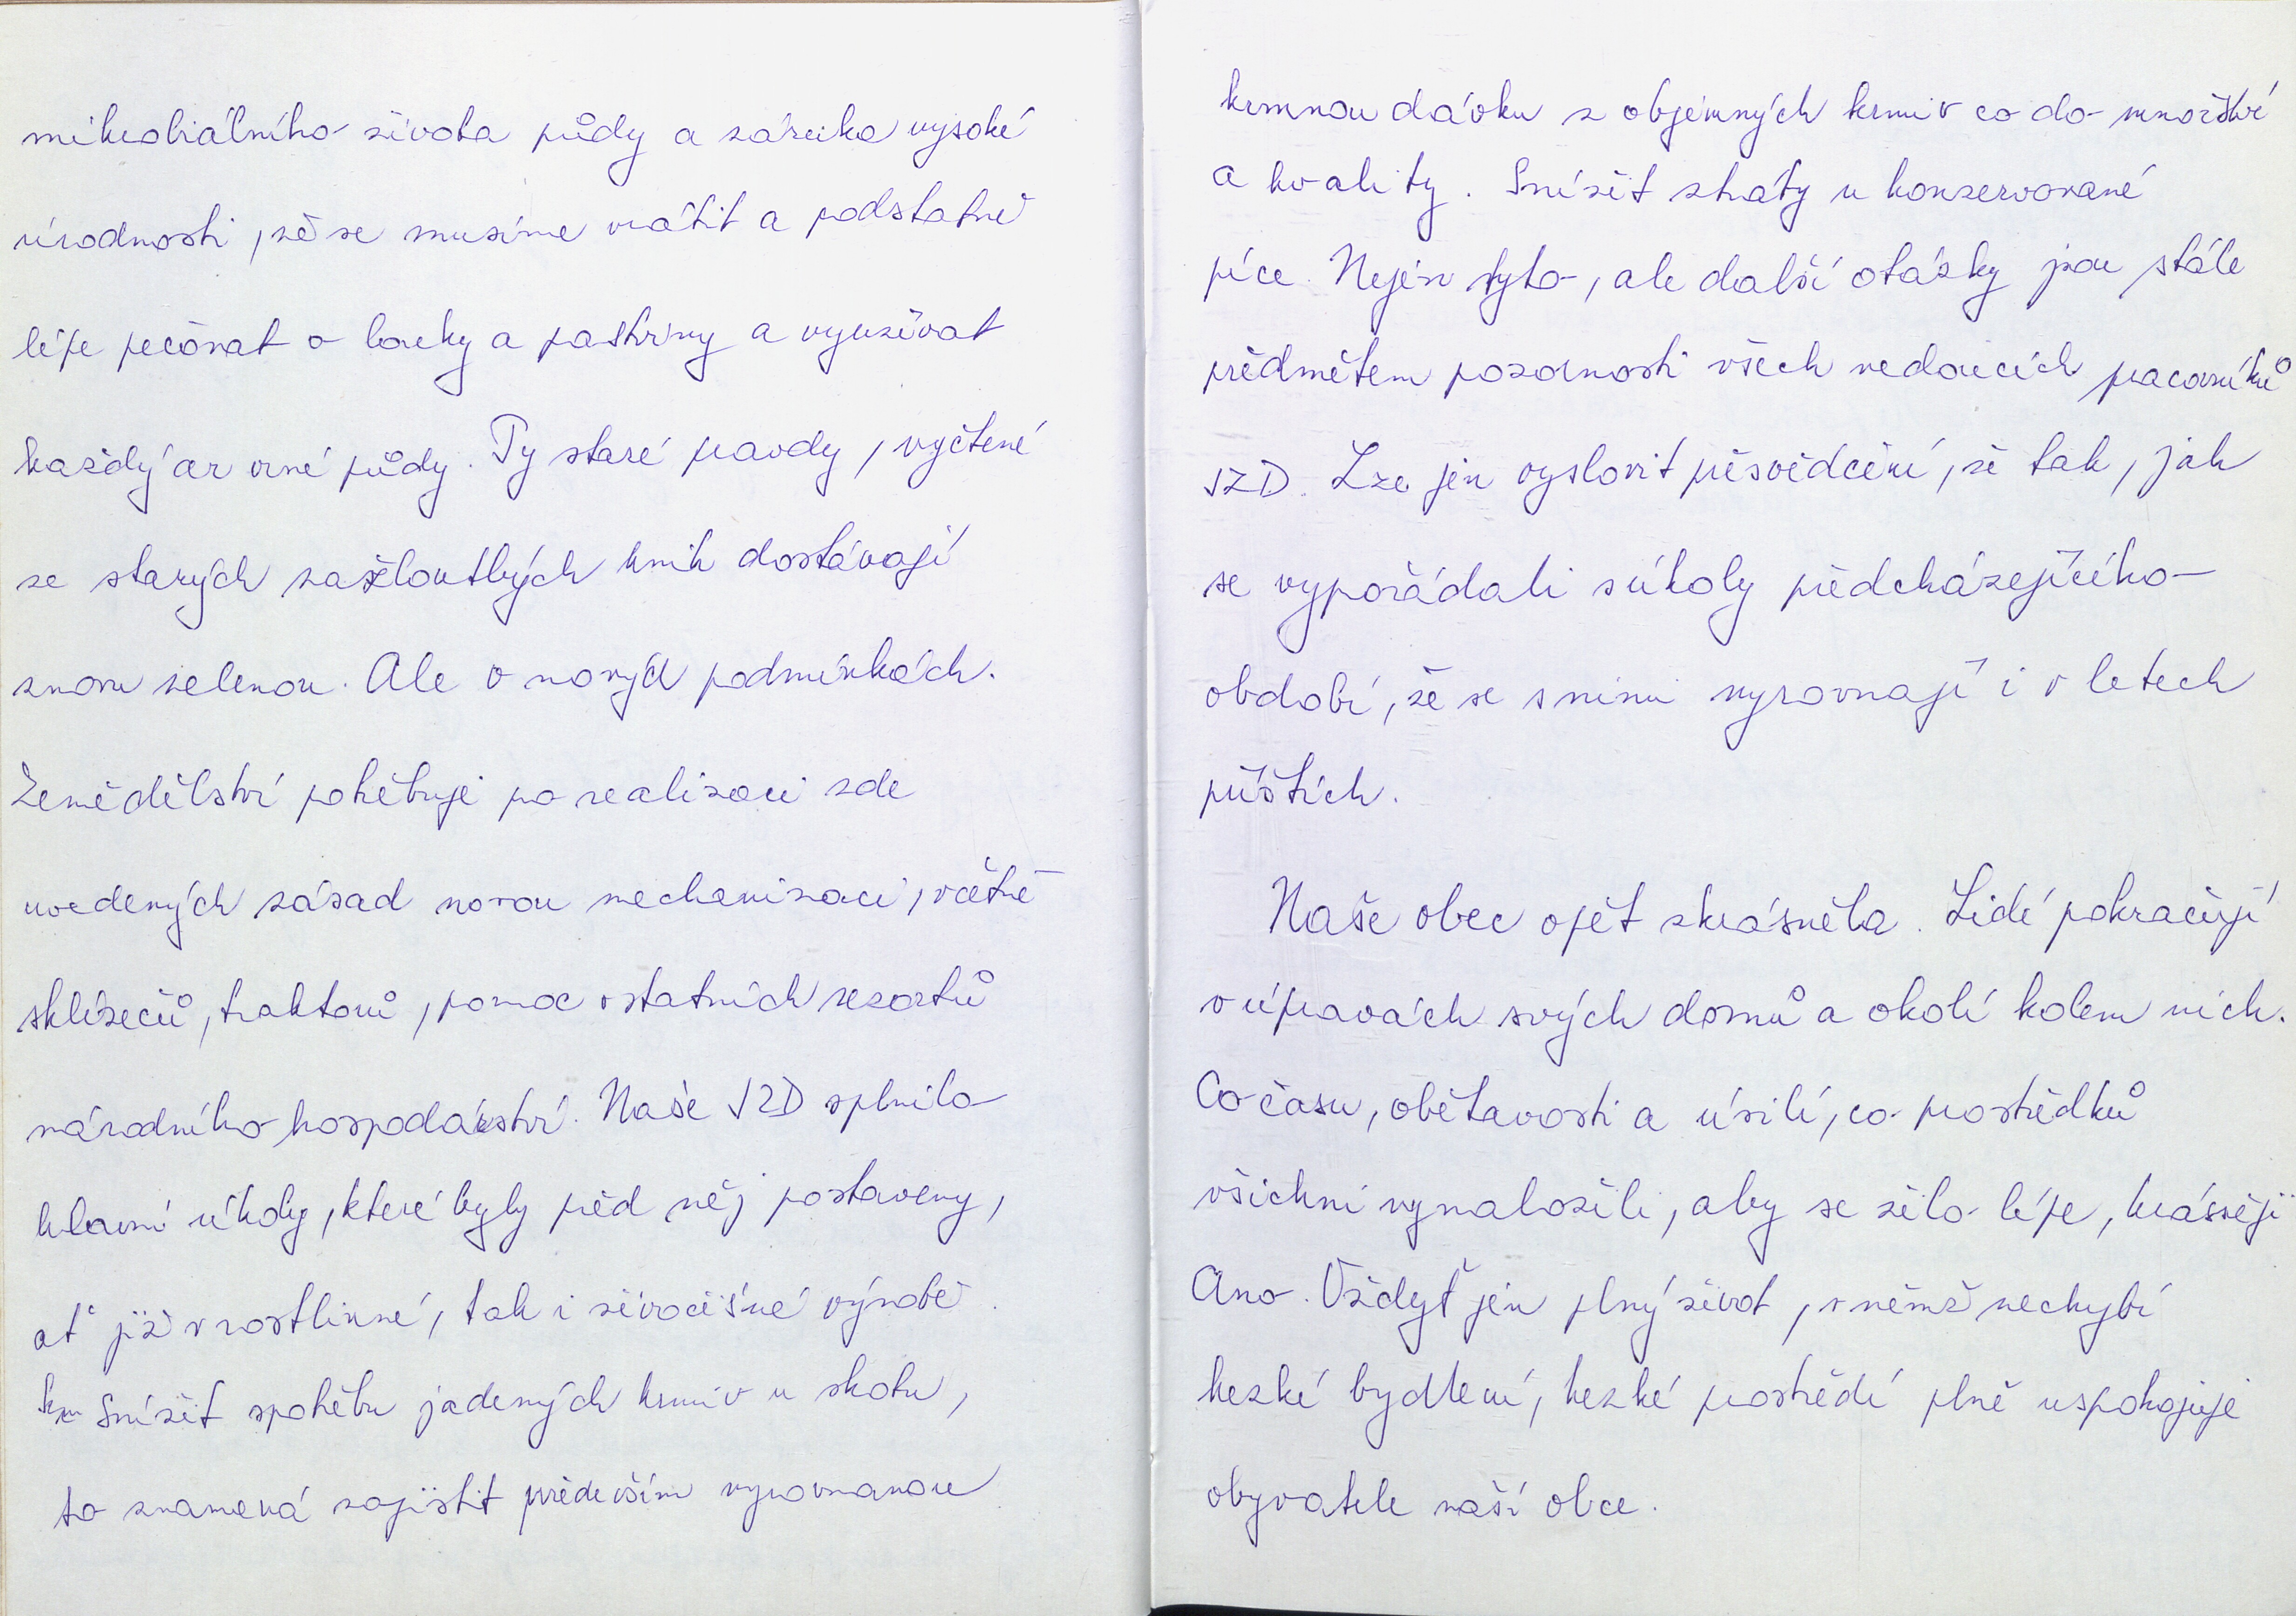 mikrobiálního života půdy a záruka vysoké
úrodnosti, že se musíme vrátit a podstatně
lépe pečovat o louky a pastviny a využívat
každý ar orné půdy. Ty staré pravdy, vyčtené
ze starých zažloutlých knih dostávají
znovu zelenou. Ale v nových podmínkách.
Zemědělství potřebuje po realizaci zde
uvedených zásad novou mechanizaci, včetně
sklízečů, traktorů, pomoc ostatních rezortů
národního hospodářství. Naše JZD splnilo
hlavní úkoly, které byly před něj postaveny,
ať již v rostlinné, tak i živočišné výrobě.
Snížit spotřebu jaderných krmiv u skotu,
to znamená zajistit především vyrovnanou
krmnou dávku z objemných krmiv co do množství
a kvality. Snížit ztráty u konzervované
píce. Nejen tyto, ale další otázky jsou stále
předmětem pozornosti všech vedoucích pracovníků
JZD. Lze jen vyslovit přesvědčení, že tak, jak
se vypořádali s úkoly předcházejícího
období, že se s nimi vyrovnají i v letech
příštích.
Naše obec opět zkrásněla. Lidé pokračují
v úpravách svých domů a okolí kolem nich.
Co času, obětavosti a úsilí, co prostředků
všichni vynaložili, aby se žilo lépe, krásněji
Ano. Vždyť jen plný život, v němž nechybí
hezké bydlení, hezké prostředí plně uspokojuje
obyvatele naší obce.